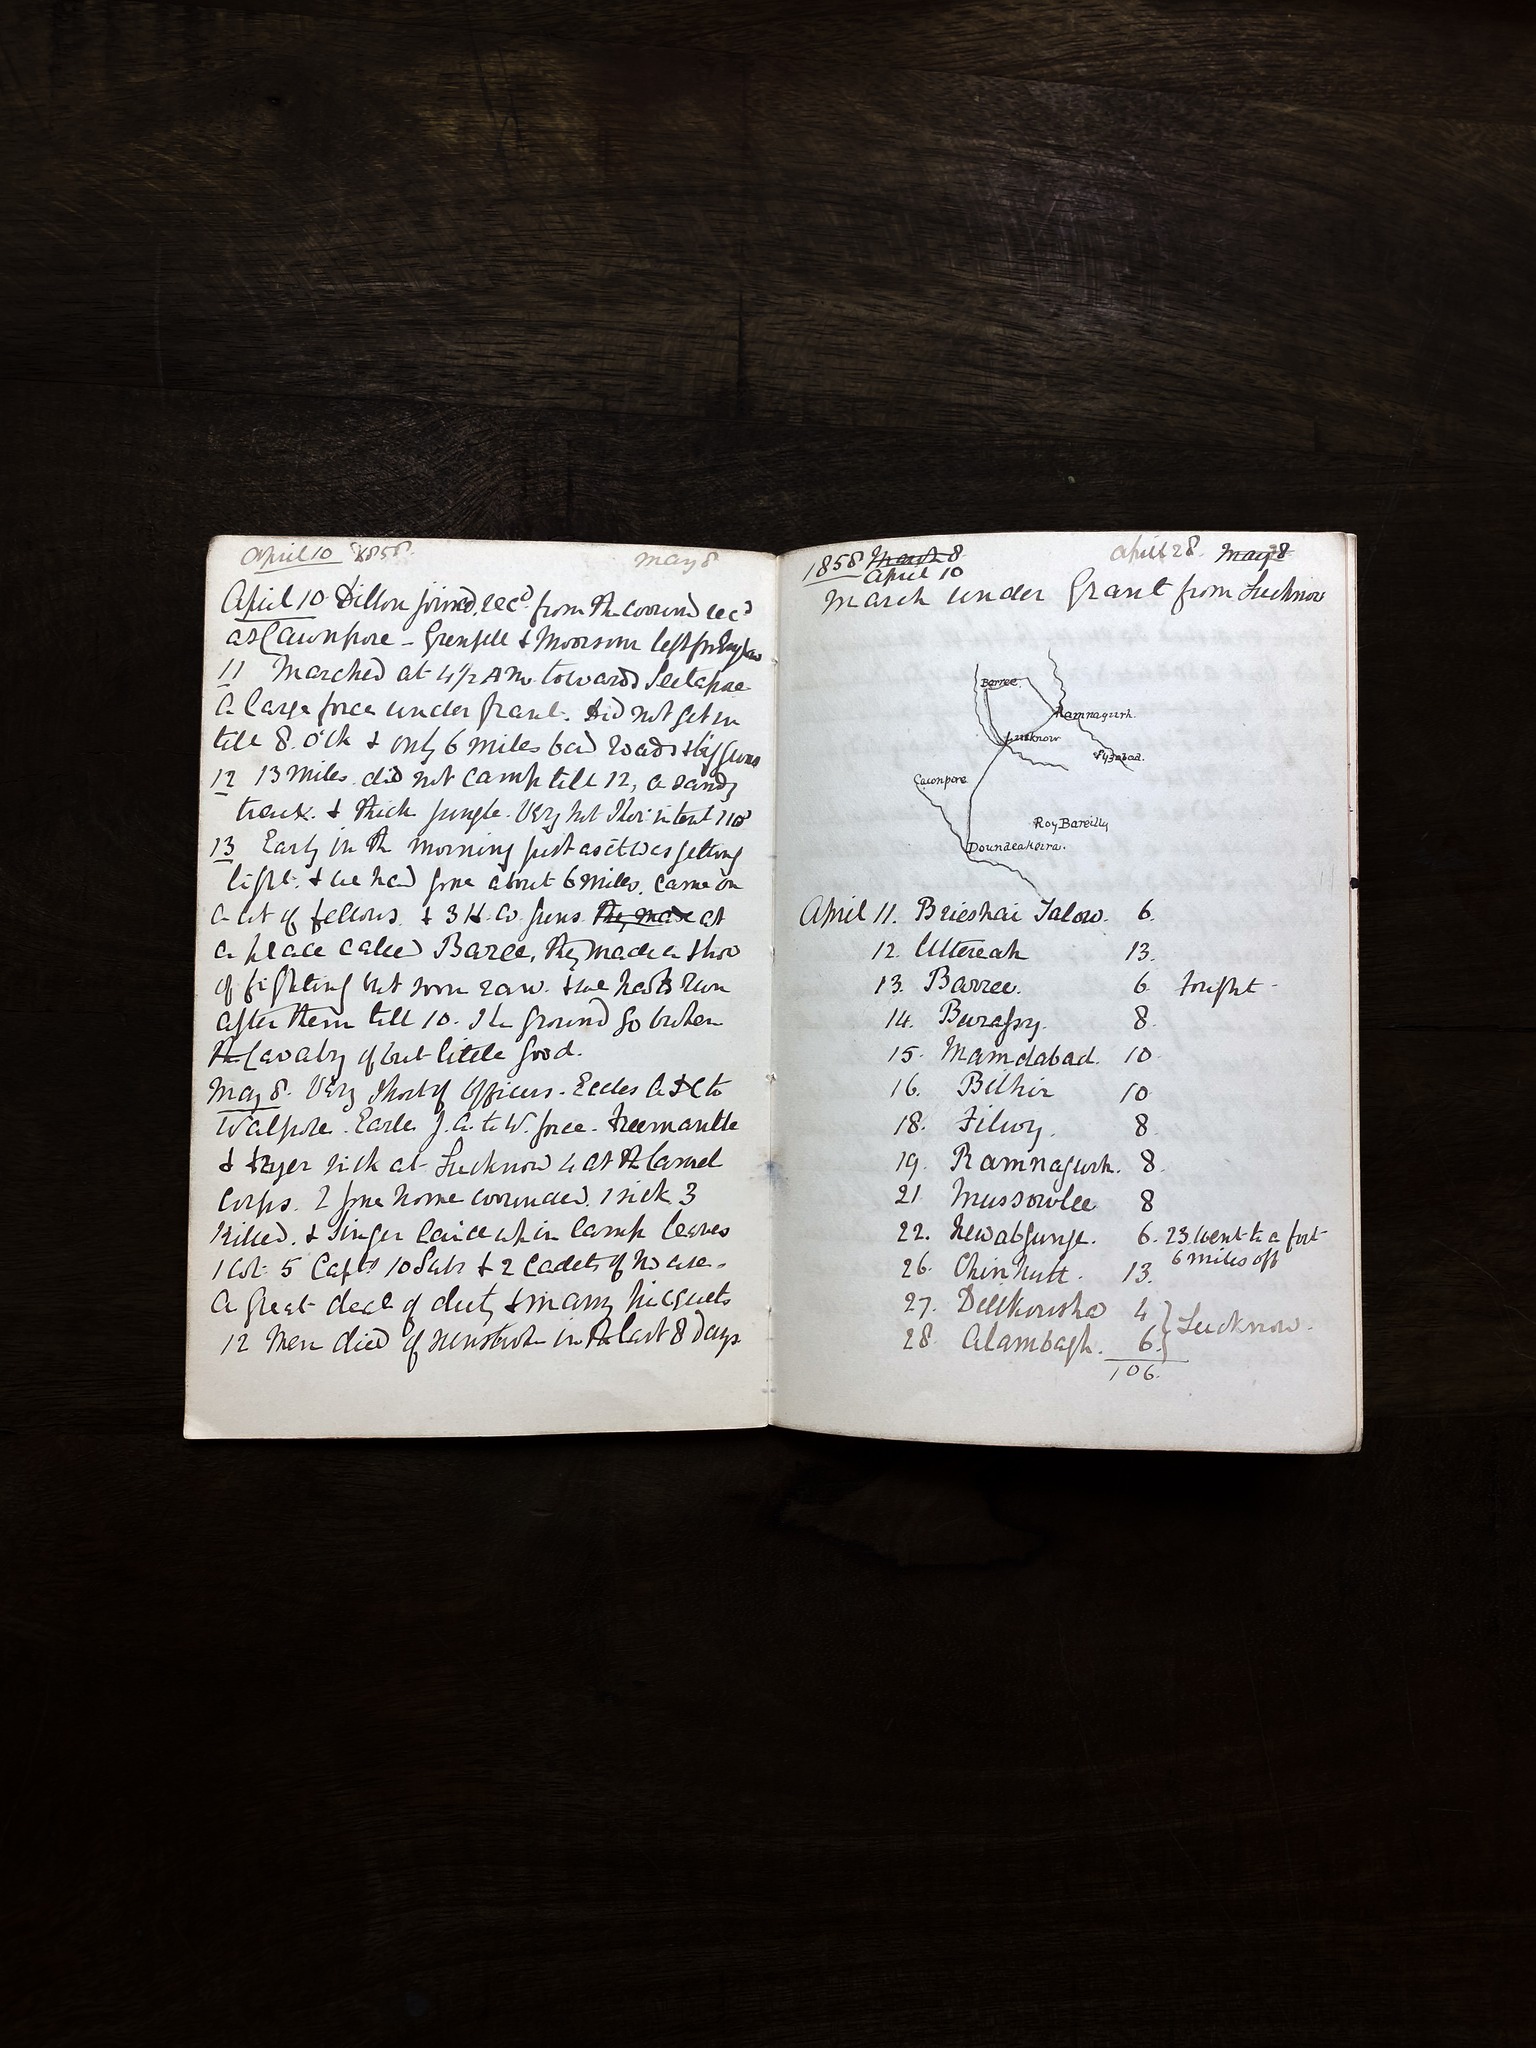 April 10 1858 May 8
April 10 Dillon joined, recd from the wound recd
at Cawnpore - Grenfell & Moorsom left for England
11 Marched at 4½ AM towards Seetapore
A large force under Grant. Did not get in
till 8 o'ck & only 6 miles bad roads & big guns
12 13 miles did not camp till 12, a sandy
track & thick jungle. Very hot Ther: in tent 110°
13 Early in the morning just as it was getting
light, & we had gone about 6 miles, came on
a lot of fellows & 3 H. Co guns. They made at
a place called Baree, they made a show
of fighting but soon ran. & we had to run
after them till 10. The ground so broken
the Cavalry of but little good.
May 8. Very short of Officers. Eccles A D C to
Walpole. Earle J. A. to W. force. Freemantle
& Fryer sick at Lucknow 4 at the Camel
Corps. 2 gone home wounded. 1 sick 3
killed. & Singer laid up in Camp leaves
1 Col: 5 Capts 10 Subs & 2 Cadets of no use.
A great deal of duty & many picquets
12 Men died of sunstroke in the last 8 days
1858 March 8 April 28 May 8
April 10
March under Grant from Lucknow
Barree.
Ramnagurh.
Lucknow
Fyzabad.
Cawnpore
Roy Bareilly
Doundeakeira.
April 11. Brieshai Talow. 6.
12. Uttereah 13.
13. Barree. 6. fought -
14. Burassy. 8.
15. Mamdabad. 10.
16. Bilhir 10.
18. Filwy. 8.
19. Ramnagurh. 8.
21. Mussowlee 8
22. Newabgunge. 6. 23. went to a fort
6 miles off
26. Chinhutt. 13.
27. Dilkousha 4
28. Alambagh. 6. } Lucknow.
106.